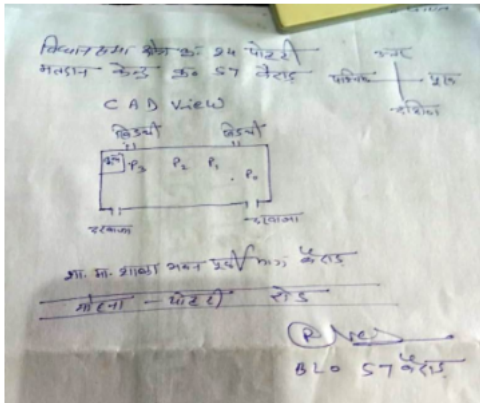 विधानसभा क्षेत्र क्र. 24 पोहरी
मतदान केन्द्र क्र० 57 बैराड़
उत्तर
पश्चिम
पूरब
दक्षिण
CAD View
खिड़की खिड़की
P3 P2 P1 P0
दरवाजा दरवाजा
शा. मा. शाला भवन पूर्व भाग बैराड़
मोहना - पोहरी रोड
BLO 57 बैराड़